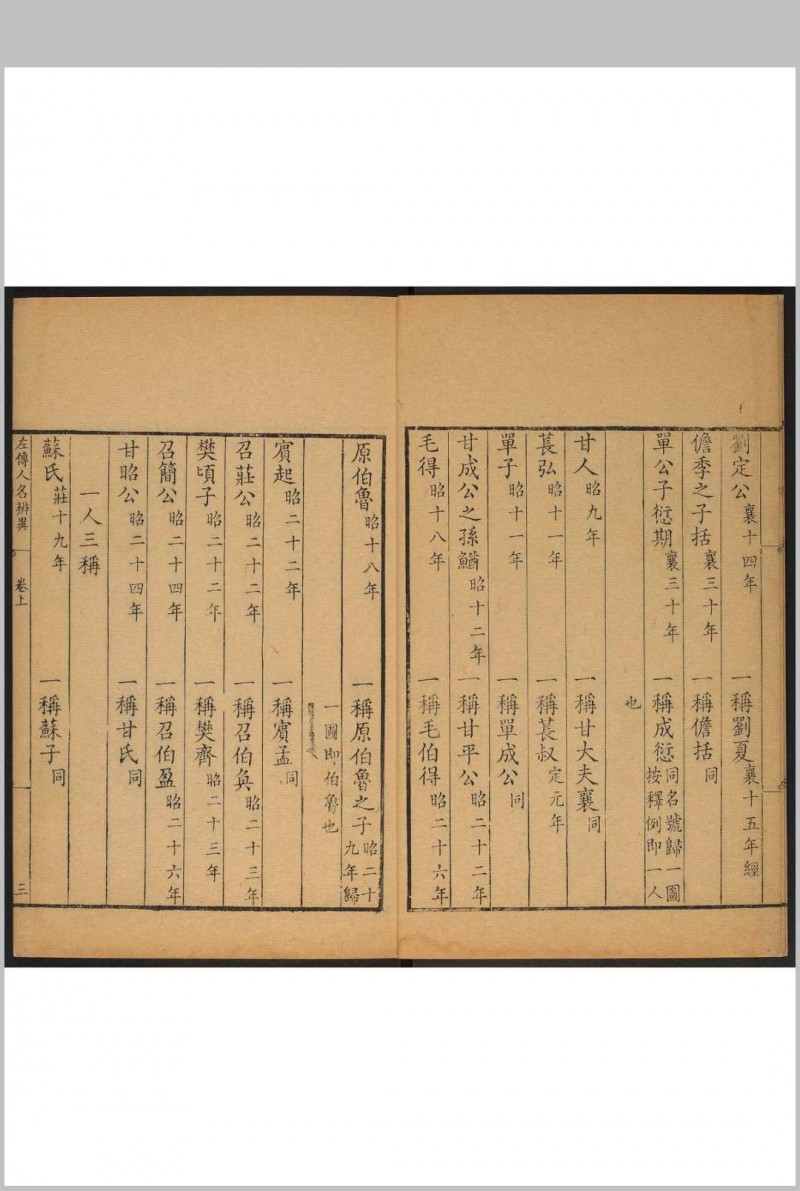 劉定公襄十四年 一稱劉夏襄十五年經
儋季之子括襄三十年 一稱儋括同
單公子愆期襄三十年 一稱成愆同名號歸一圖按釋例即一人
也
甘人昭九年 一稱甘大夫襄同
萇弘昭十一年 一稱萇叔定元年
單子昭十一年 一稱單成公同
甘成公之孫鰌昭十二年 一稱甘平公昭二十二年
毛得昭十八年 一稱毛伯得昭二十六年
原伯魯昭十八年 一稱原伯魯之子昭二十九年歸
一圖即伯魯也
賓起昭二十二年 一稱賓孟同
召莊公昭二十二年 一稱召伯奐昭二十三年
樊頃子昭二十二年 一稱樊齊昭二十三年
召簡公昭二十四年 一稱召伯盈昭二十六年
甘昭公昭二十四年 一稱甘氏同
一人三稱
蘇氏莊十九年 一稱蘇子同
左傳人名辨異 卷上 三